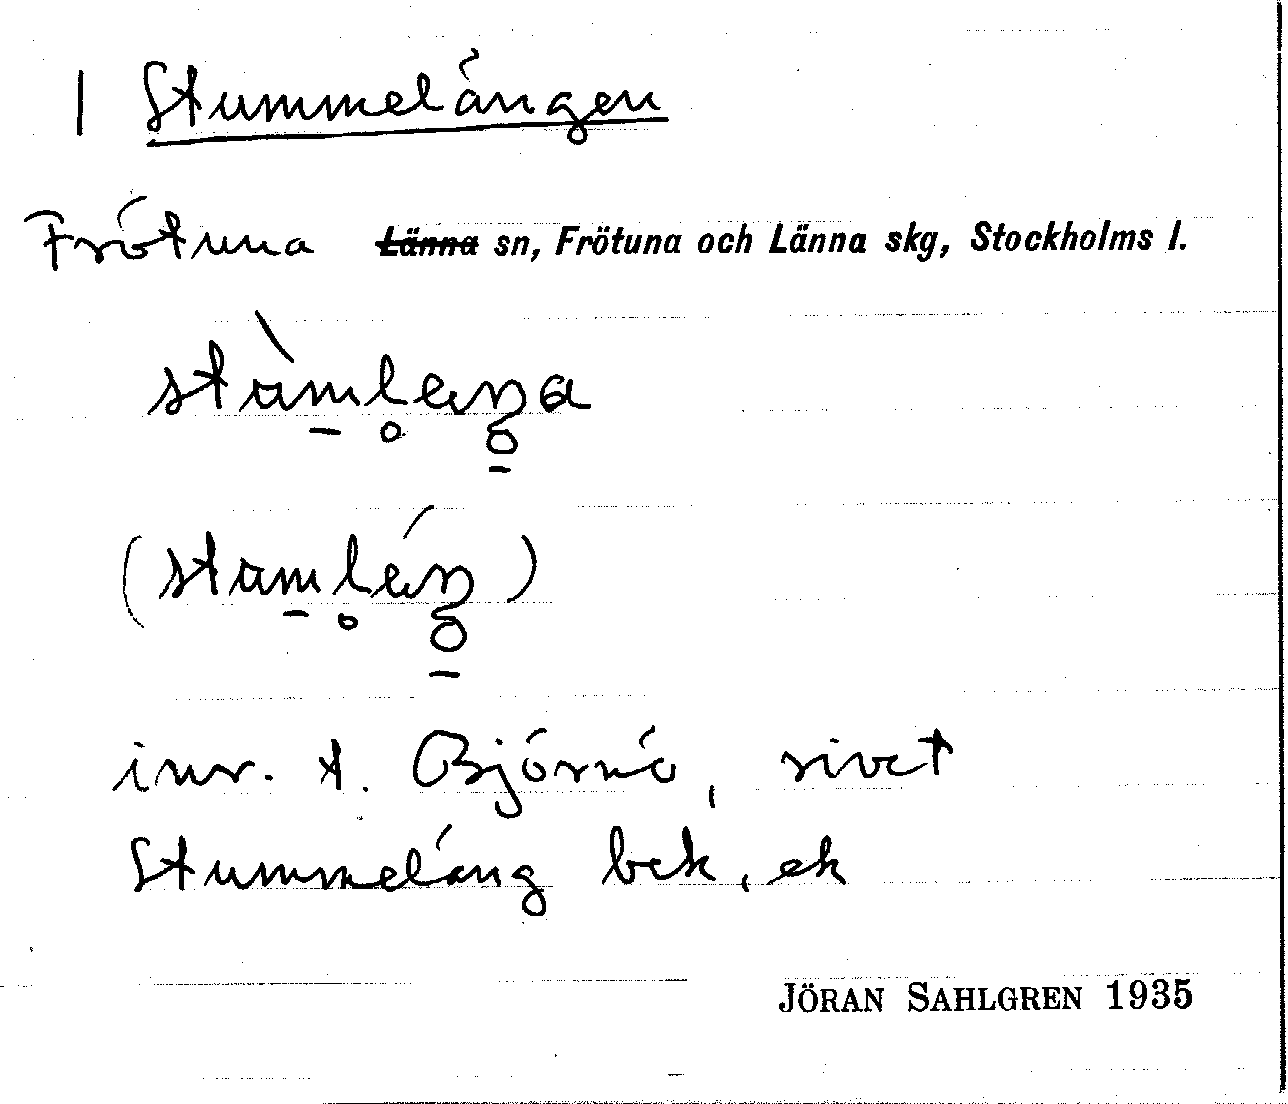 | Stummelängen
Frötuna Länna sn, Frötuna och Länna skg, Stockholms l.
inv. t. Björnö, rivet
Stummeläng bek, ek
JÖRAN SAHLGREN 1935